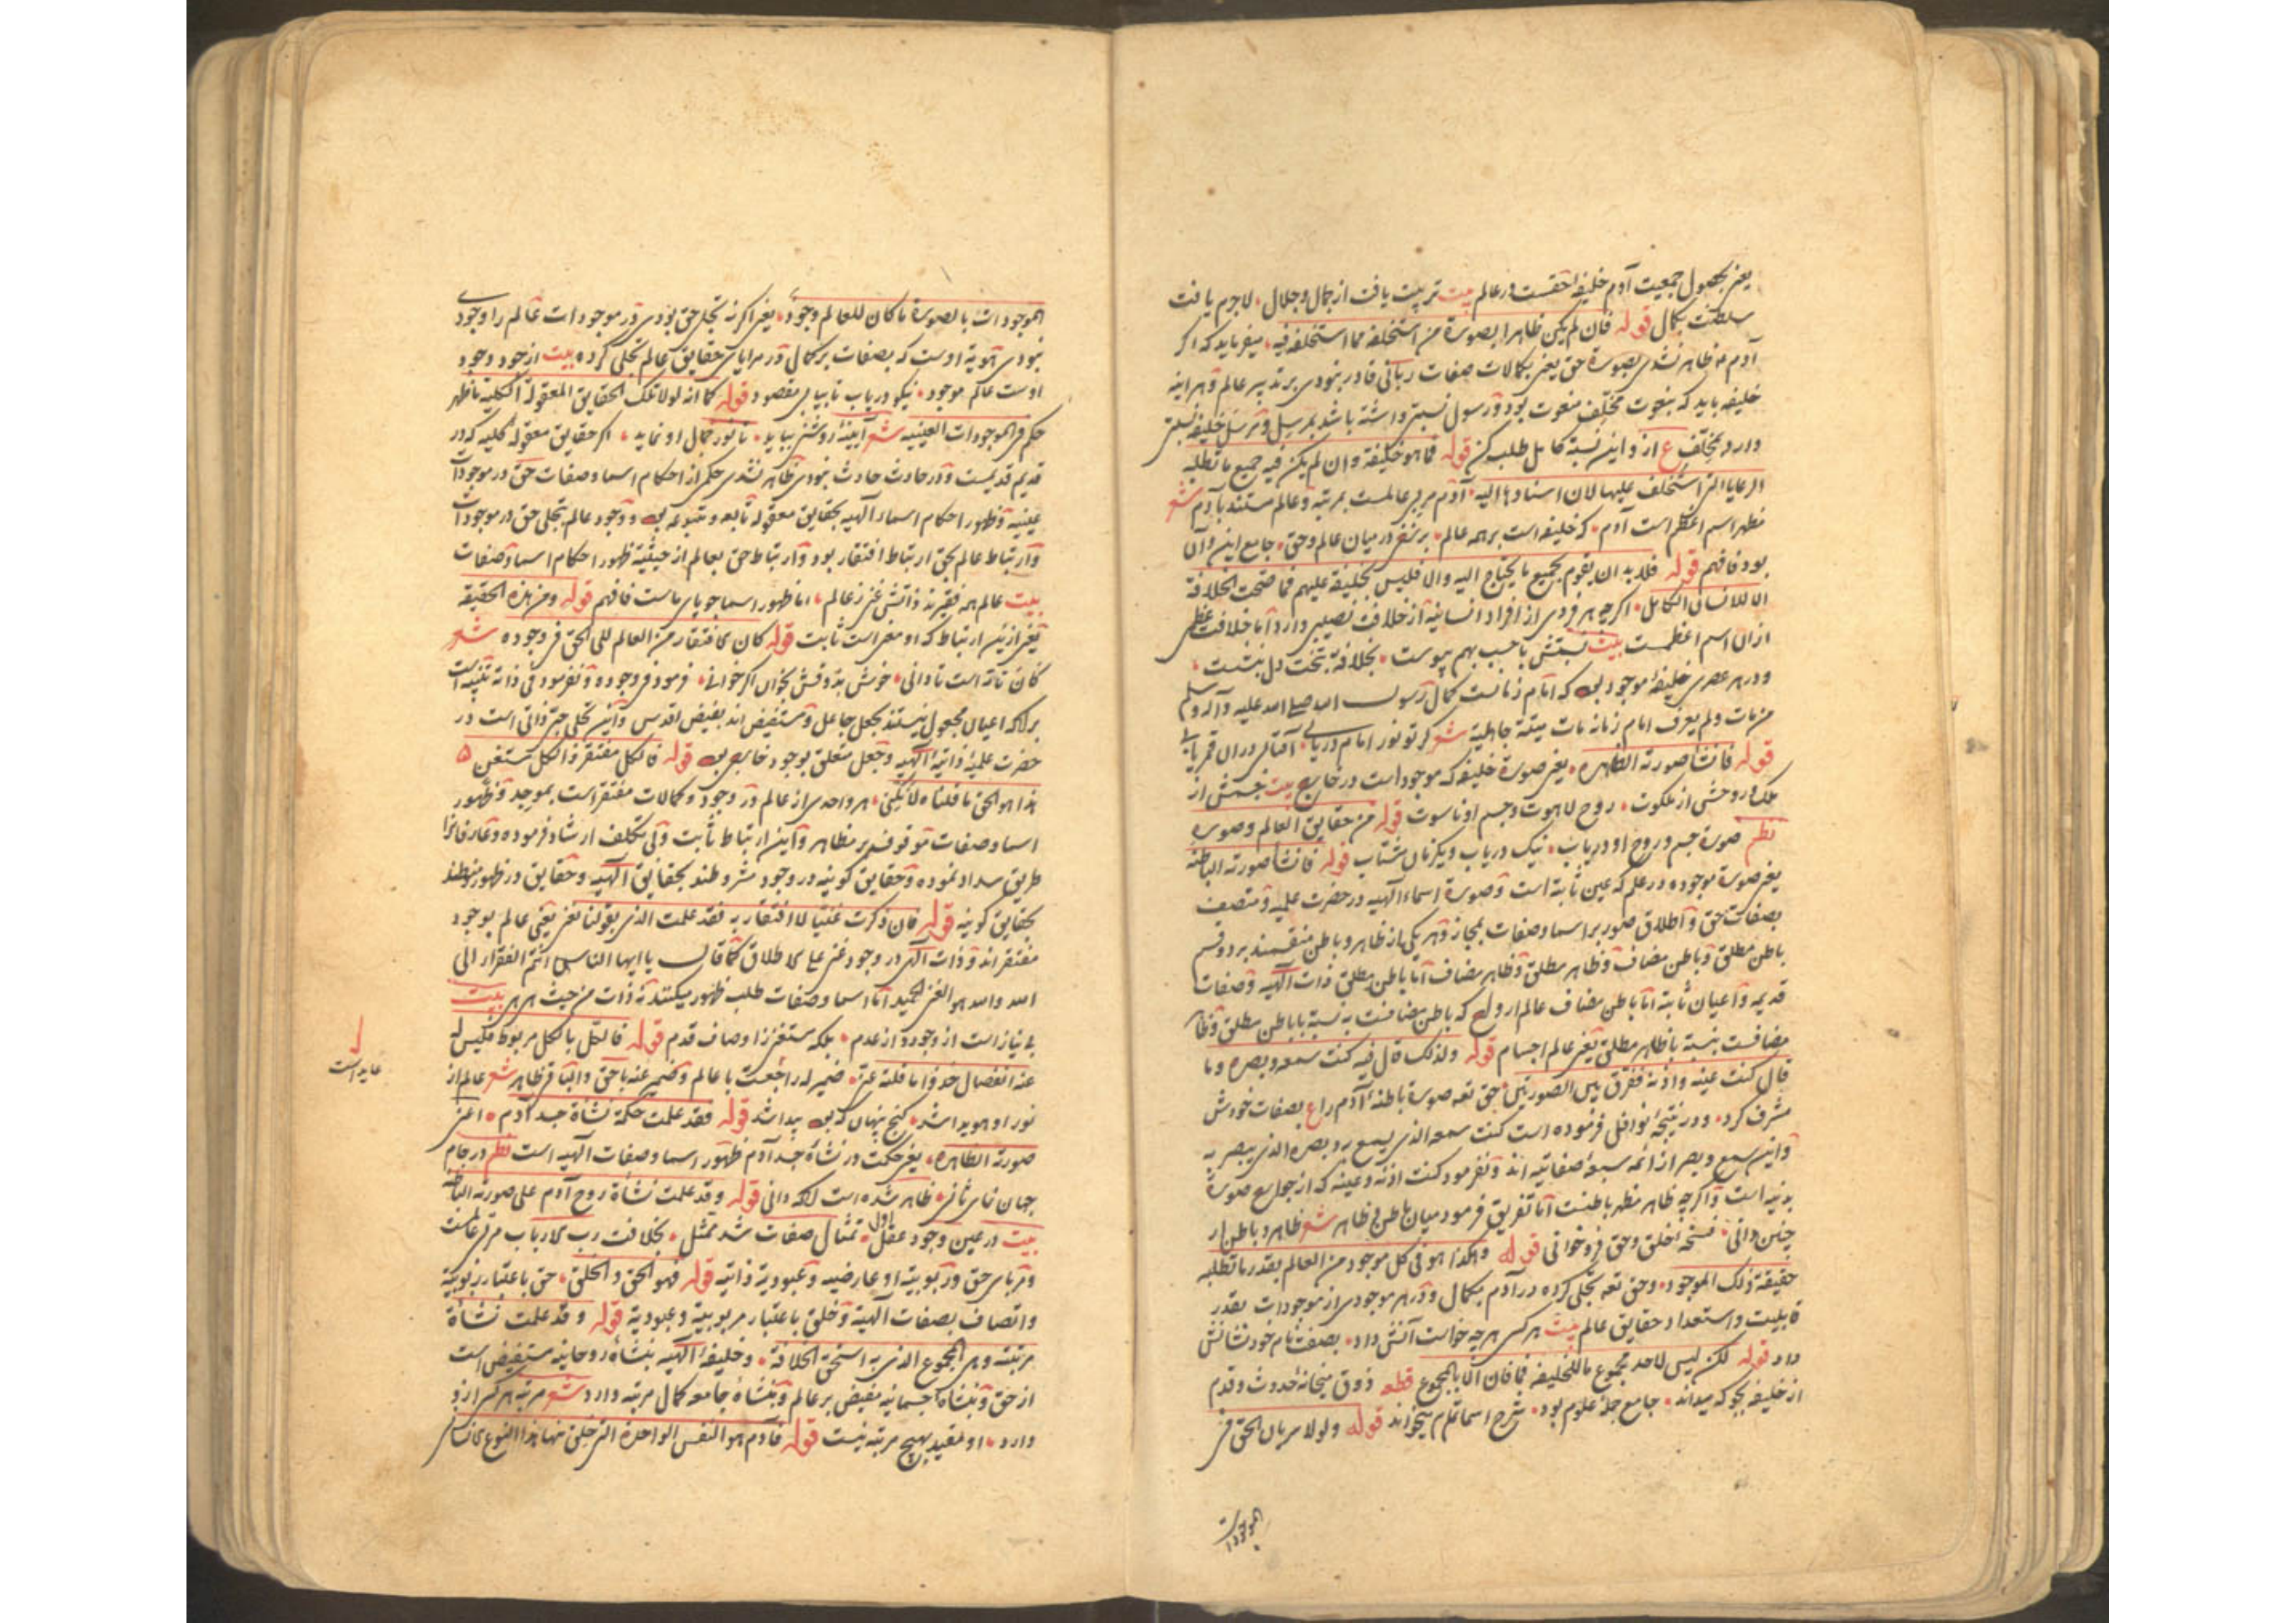 یعنی بحصول جمعیت آدم خلیفهٔ حقست در عالم بیت تربیت یافت از جمال و جلال لاجرم یافت
سلطنت بکمال قوله فان لم یکن ظاهرا بصورة من استخلفه فیما استخلفه فیه میفرماید که اگر
آدم نه ظاهر شدی بصورة حق یعنی بکمالات صفات ربانی قادر نبودی بر تدبیر عالم و هر اینه
خلیفه باید که بنعوت مخلف منعوت بود و رسول نسبتی داشته باشد بمرسِل و مرسَل خلیفه نسبتی
دارد بمخلف ع از و این نسبة کامل طلب کن قوله فما هو خلیفة وان لم یکن فیه جمیع ما تطلبه
الرعایا التی استخلف علیها لان استنادها الیه آدم مربی عالمست بمرتبه و عالم مستند بآدم شعر
مظهر اسم اعظم است آدم که خلیفه است بر همه عالم برزخی در میان عالم و حق جامع این و آن
بود فافهم قوله فلا بد ان یقوم بجمیع ما یحتاج الیه والا فلیس بخلیفة علیهم فما صحت الخلافة
الا للانسان الکامل اگرچه هر فردی از افراد انسانیه از خلافت نصیبی دارد اما خلافت عظمی
ازان اسم اعظمست بیت نسبتش با حسب بهم پیوست بخلافة بتخت دل بنشست
و در هر عصری خلیفهٔ موجود بود که امام زمانست کمال رسول الله صلی الله علیه وآله وسلم
من مات ولم یعرف امام زمانه مات میتة جاهلیة شعر گر تو نور امام دریابی آفتابی در ان قمر یابی
قوله فانشأ صورته الظاهرة یعنی صورة خلیفه که موجود است در خارج بیت جسمش از
ملک و روحش از ملکوت روح لاهوت و جسم او ناسوت قوله من حقایق العالم وصوره
نظم صورة جسم و روح او دریاب نیک دریاب و یکزمان بشتاب قوله فانشأ صورته الباطنة
یعنی صورة موجوده در علم که عین ثابته است و صورة اسماء الهیه در حضرت علمیه و متصف
بصفات حق و اطلاق صور بر اسما و صفات بمجاز و هر یکی از ظاهر و باطن منقسمند بر دو قسم
باطن مطلق و باطن مضاف و ظاهر مطلق و ظاهر مضاف اما باطن مطلق ذات الهیه و صفات
قدیمه و اعیان ثابته اما باطن مضاف عالم ارواح که باطن مضافست به نسبة با باطن مطلق و ظاهر
مضافست بنسبة با ظاهر مطلق یعنی عالم اجسام قوله ولذلک قال فیه کنت سمعه وبصره وما
قال کنت عینه واذنه ففرق بین الصورتین حق تعه صورة باطنهٔ آدم را ع بصفات خودش
مشرف کرد و در نتیجهٔ نوافل فرموده است کنت سمعه الذی یسمع به وبصره الذی یبصر به
و این سمع و بصر از ائمه سبعهٔ صفاتیه اند و نفرمود کنت اذنه و عینه که از جوارح صورة
بدنیه است و اگرچه ظاهر مظهر باطنست اما تفریق فرمود میان باطن و ظاهر شعر ظاهر و باطن ار
چنین دانی نسخهٔ خلق و حق فروخوانی قوله وهکذا هو فی کل موجود من العالم بقدر ما تطلبه
حقیقة ذلک الموجود و حق تعه تجلی کرده در آدم بکمال و در هر موجودی از موجودات بقدر
قابلیت و استعداد حقایق عالم بیت هر کسی هرچه خواست آنش داد بصفت نام خود نشانش
داد قوله لکن لیس لاحد مجموع ما للخلیفة فما فاز الا بالمجموع قطعه ذوق میخانهٔ حدوث و قدم
از خلیفه بجو که میداند جامع جملهٔ علوم بود شرح اسما تمام میخواند قوله ولولا سریان الحق فی
الموجودات
الموجودات بالصورة ما کان للعالم وجود یعنی اگر نه تجلی حق بودی در موجودات عالم را وجودی
نبودی هویة اوست که بصفات بر کمال در مرایای حقایق عالم تجلی کرده بیت از جود وجود
اوست عالم موجود نیکو دریاب تا بیابی مقصود قوله کما انه لولا تلک الحقایق المعقولة الکلیة ما ظهر
حکم فی الموجودات العینیه شعر آیینهٔ روشنی بباید تا نور جمال او نماید اگر حقایق معقولهٔ کلیه که در
قدیم قدیمست و در حادث حادث نبودی ظاهر نشدی حکمی از احکام اسما و صفات حق در موجودات
عینیه و ظهور احکام اسماء الهیه بحقایق معقوله تابعه و متبوعه بود و وجود عالم بتجلی حق در موجودات
و ارتباط عالم بحق ارتباط افتقار بود و ارتباط حق بعالم از حیثیة ظهور احکام اسما و صفات
بیت عالم همه فقیرند ذاتش غنی ز عالم اما ظهور اسما جویای ماست فافهم قوله ومن هذه الحقیقة
یعنی از این ارتباط که او معنی است ثابت قوله کان الافتقار من العالم الی الحق فی وجوده شعر
کان تامه است تا دانی خوش بذوقش بخوان اگر خوانی فرمود فی وجوده و نفرمود فی ذاته تنبیه است
بر انکه اعیان مجعول نیستند بجعل جاعل و مستفیض اند بفیض اقدس و این تجلی حبی ذاتی است در
حضرت علمیهٔ ذاتیهٔ الهیه و جعل متعلق بوجود خارجی بود قوله فالکل مفتقر ما الکل مستغن
هذا هو الحق قد قلناه لا نکنی هر واحدی از عالم در وجود و کمالات مفتقر است بموجد و ظهور
اسما و صفات موقوفند بر مظاهر و این ارتباط ثابت و لی بتکلف ارشاد فرموده و عارفانرا
طریق سداد نموده و حقایق کونیه در وجود مشروطند بحقایق الهیه و حقایق در ظهور منوطند
بحقایق کونیه قوله فان ذکرت غنیا لا افتقار به فقد علمت الذی بقولنا نعنی یعنی عالم بوجود
مفتقرند و ذات الهی در وجود غنی علی الاطلاق کما قال یا ایها الناس انتم الفقراء الی
الله والله هو الغنی الحمید اما اسما و صفات طلب ظهور میکنند نه ذات من حیث هی هی بیت
بی نیاز است از وجود و از عدم بلکه مستغنی ز اوصاف قدم قوله فالکل بالکل مربوط فلیس له
عنه انفصال خذوا ما قلته عنی ضمیر له راجعست با عالم و ضمیر عنه با حق و الباقی ظاهر شعر عالم از
نور او هویدا شد گنج پنهان که بود پیدا شد قوله فقد علمت حکمة نشأة جسد آدم اعنی
صورته الظاهرة یعنی حکمت در نشأة جسد آدم ظهور اسما و صفات الهیه است نظم در جام
جهان نمای ثانی ظاهر شده است انکه دانی قوله وقد علمت نشأة روح آدم علی صورته الباطنة
بیت در عین وجود عقل اول تمثال صفات شد تمثل بخلافت رب الارباب مربی عالمست
و مربای حق و ربوبیة او عارضیه و عبودیة ذاتیه قوله فهو الحق والخلق حق باعتبار ربوبیة
و اتصاف بصفات الهیة و خلق باعتبار مربوبیة و عبودیة قوله وقد علمت نشأة
مرتبته وهی المجموع الذی به استحق الخلافة و خلیفهٔ الهیه بنشأهٔ روحانیه مستفیض است
از حق و بنشاهٔ جسمانیه مفیض بر عالم و بنشاهٔ جامعه کمال مرتبه دارد شعر مرتبه هر کسی از و
دارد او مقید بهیچ مرتبه نیست قوله فآدم هو النفس الواحدة التی خلق منها هذا النوع الانسانی
عاید است